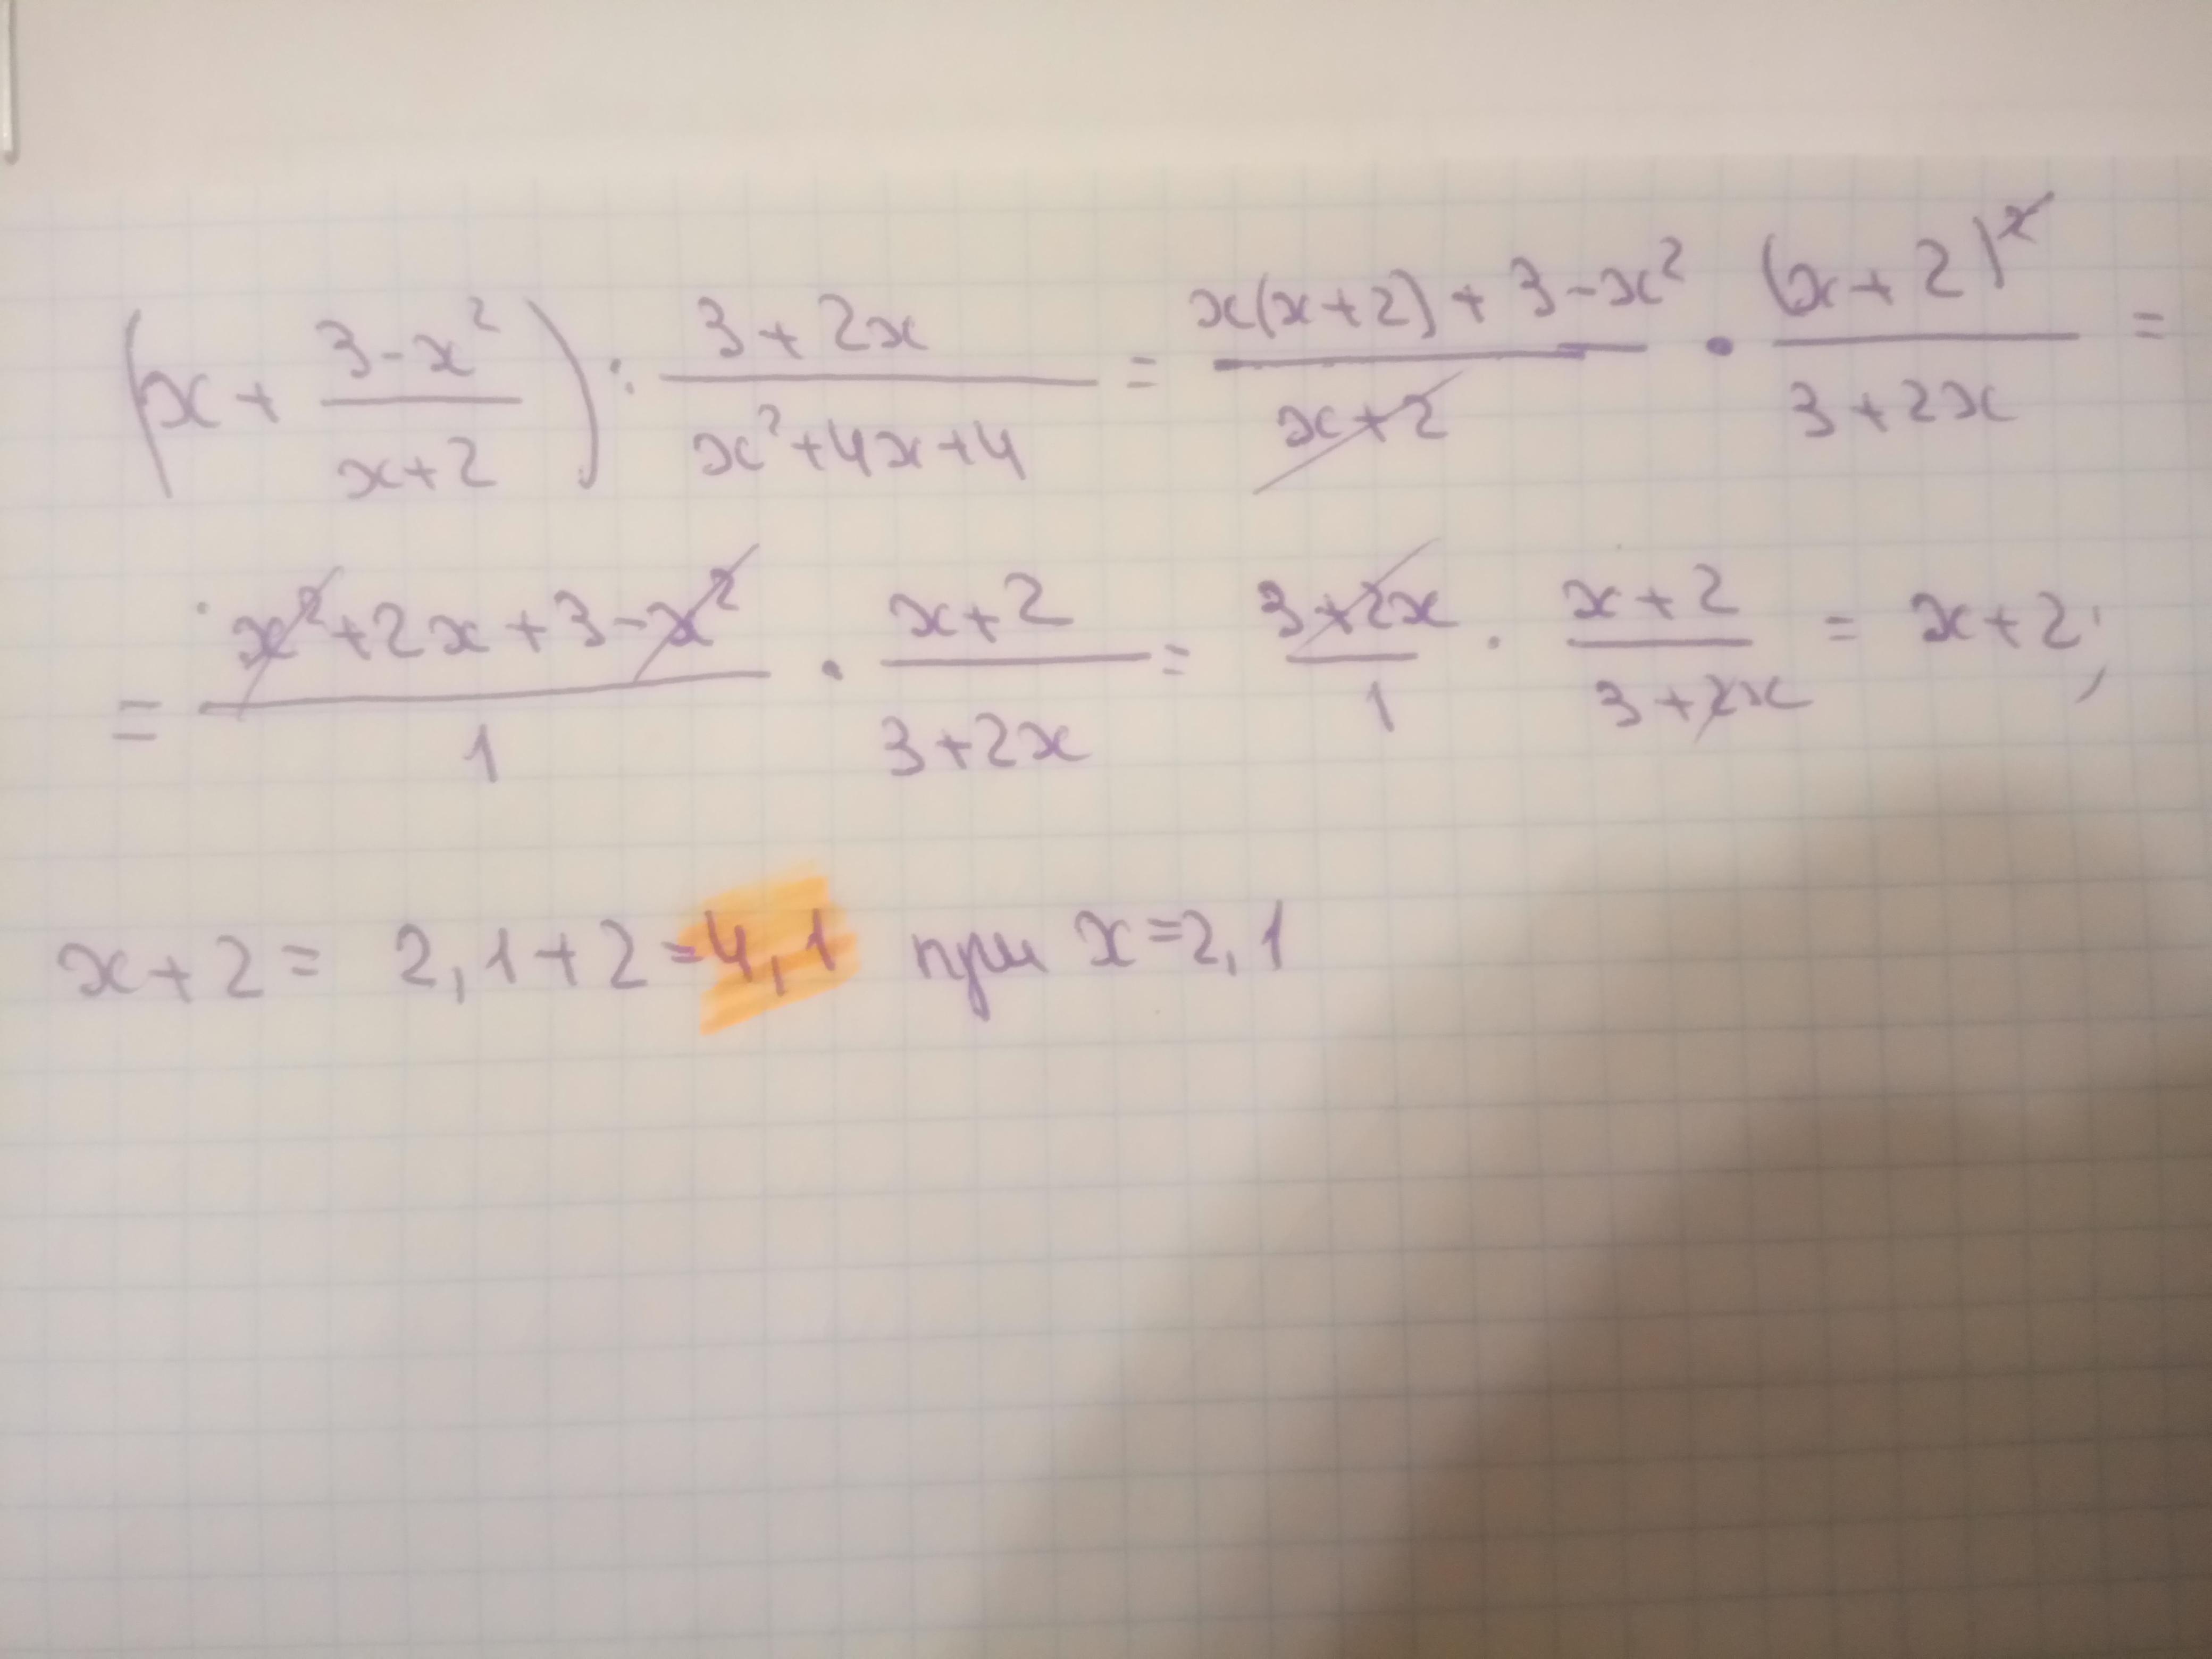 (x + (3-x²)/(x+2)) : (3+2x)/(x²+4x+4) = (x(x+2)+3-x²)/(x+2) · (x+2)²/(3+2x) =
= (x²+2x+3-x²)/1 · (x+2)/(3+2x) = (3+2x)/1 · (x+2)/(3+2x) = x+2;
x+2= 2,1+2=4,1 при x=2,1